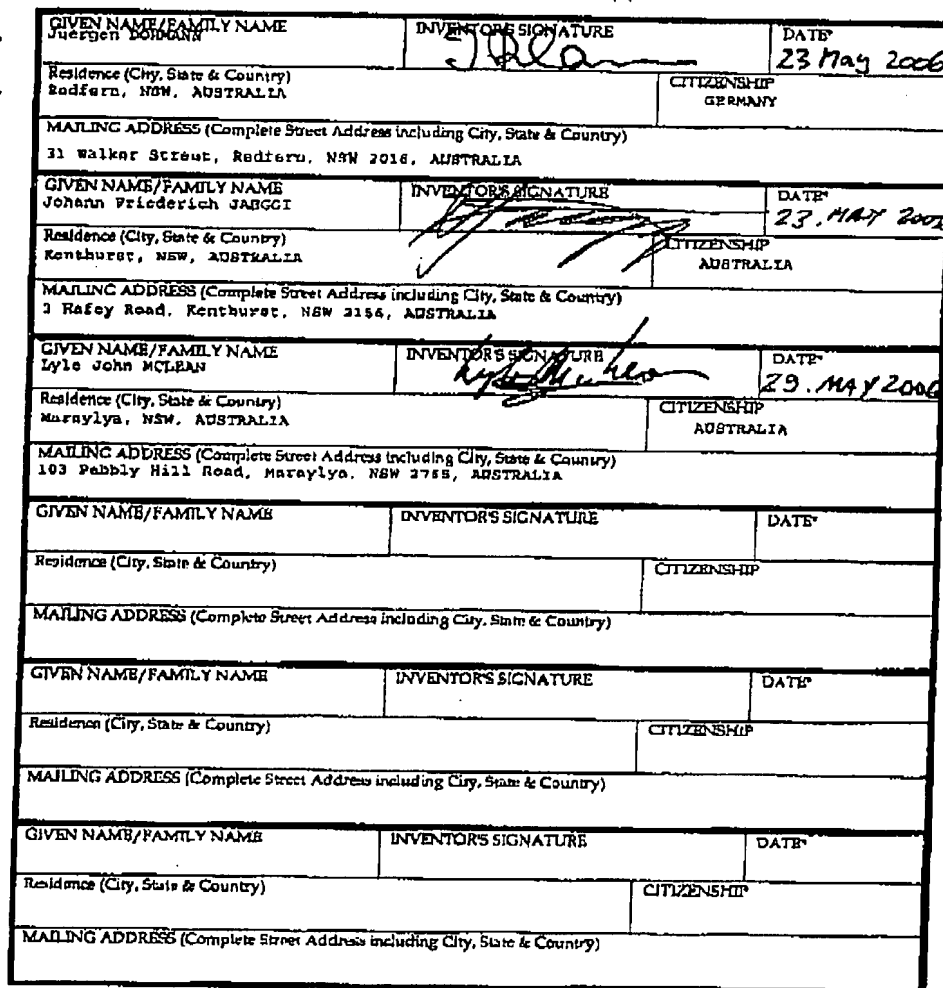 GIVEN NAME/FAMILY NAME INVENTOR'S SIGNATURE DATE*
Juergen DOHMANN 23 May 2006
Residence (City, State & Country) CITIZENSHIP
Redfern, NSW, AUSTRALIA GERMANY
MAILING ADDRESS (Complete Street Address including City, State & Country)
31 Walker Street, Redfern, NSW 2016, AUSTRALIA
GIVEN NAME/FAMILY NAME INVENTOR'S SIGNATURE DATE*
Johann Friederich JAEGGI 23. MAY
Residence (City, State & Country) CITIZENSHIP
Kenthurst, NSW, AUSTRALIA AUSTRALIA
MAILING ADDRESS (Complete Street Address including City, State & Country)
Road, Kenthurst, NSW 2156, AUSTRALIA
GIVEN NAME/FAMILY NAME INVENTOR'S SIGNATURE DATE*
Lyle John MCLEAN 29. MAY 2006
Residence (City, State & Country) CITIZENSHIP
Maraylya, NSW, AUSTRALIA AUSTRALIA
MAILING ADDRESS (Complete Street Address including City, State & Country)
103 Pebbly Hill Road, Maraylya, NSW 2765, AUSTRALIA
GIVEN NAME/FAMILY NAME INVENTOR'S SIGNATURE DATE*
Residence (City, State & Country) CITIZENSHIP
MAILING ADDRESS (Complete Street Address including City, State & Country)
GIVEN NAME/FAMILY NAME INVENTOR'S SIGNATURE DATE*
Residence (City, State & Country) CITIZENSHIP
MAILING ADDRESS (Complete Street Address including City, State & Country)
GIVEN NAME/FAMILY NAME INVENTOR'S SIGNATURE DATE*
Residence (City, State & Country) CITIZENSHIP
MAILING ADDRESS (Complete Street Address including City, State & Country)